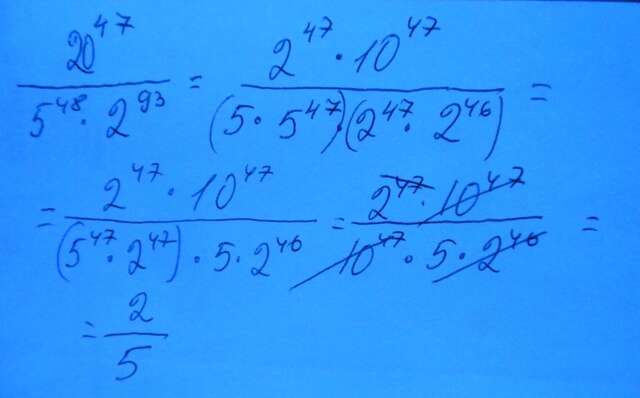 20^47 / (5^48 · 2^93) = (2^47 · 10^47) / ((5 · 5^47) · (2^47 · 2^46)) =
= (2^47 · 10^47) / ((5^47 · 2^47) · 5 · 2^46) = (2^47 · 10^47) / (10^47 · 5 · 2^46) =
= 2/5